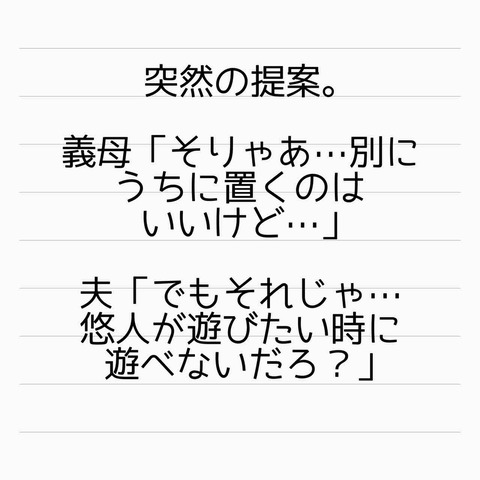 突然の提案。
義母「そりゃあ…別に
うちに置くのは
いいけど…」
夫「でもそれじゃ…
悠人が遊びたい時に
遊べないだろ？」